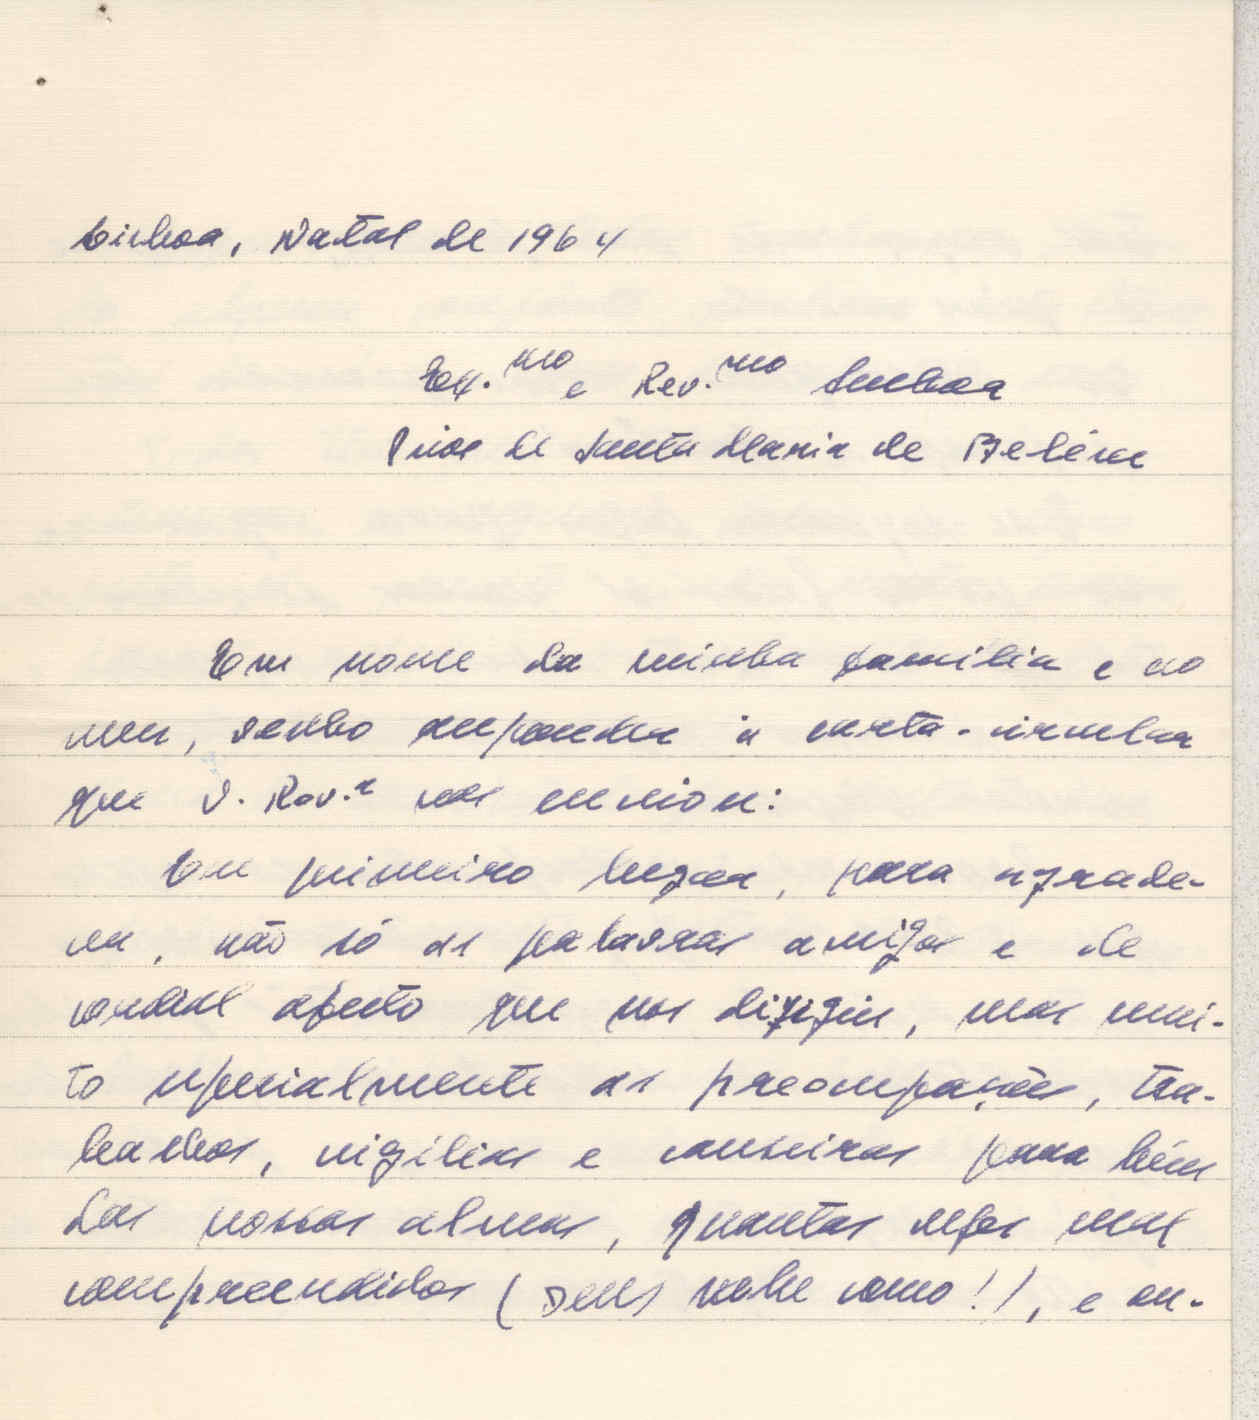 Lisboa, Natal de 1964
Ex.mo e Rev.mo Senhor
Prior de Santa Maria de Belém
Em nome da minha família e no
meu, venho responder à carta-circular
que V. Rev.ª nos enviou:
Em primeiro lugar, para agrade-
cer, não só as palavras amigas e de
cordial afecto que nos dirigiu, mas mui-
to especialmente as preocupações, tra-
balhos, vigílias e canseiras para bem
das nossas almas, quantas vezes mal
compreendidos (Deus sabe como!), e en-